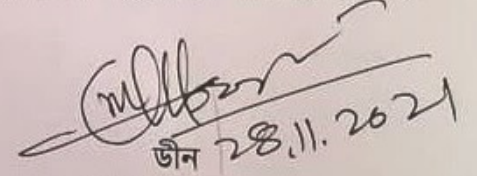 ডীন 28.11.2021